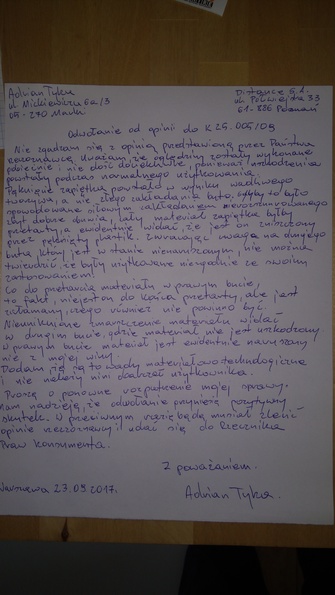 Adrian Tyka
ul. Mickiewicza 6a/3
05-270 Marki
Distance S.A.
ul. Polwiejska 33
61-886 Poznań
Odwołanie od opinii do K25.005/09
Nie zgadzam się z opinią przedstawioną przez Państwa
rzeczoznawcę. Uważam, że oględziny zostały wykonane
pobieżnie i nie dość dokładnie, ponieważ uszkodzenia
powstały podczas normalnego użytkowania.
Pęknięcie zapiętka powstało w wyniku wadliwego
tworzywa, a nie złego zakładania buta. Gdyby to było
spowodowane siłowym zakładaniem nierozsznurowanego
buta obuwia, cały materiał zapiętka byłby
przetarty, a ewidentnie widać, że jest on zniszczony
przez pęknięty plastik. Zwracając uwagę na drugiego
buta, który jest w stanie nienaruszonym, nie można
twierdzić, że były użytkowane niezgodnie ze swoimi
zastosowaniem!
Co do przetarcia materiału w prawym bucie,
to fakt, miejscem do końca przetarty, ale jest
złamany, czego również nie powinno być.
Nieuniknione zmarszczenie materiału widać
w drugim bucie, gdzie materiał nie jest uszkodzony
w prawym bucie materiał jest ewidentnie naruszony
nie z mojej winy.
Dodam, że są to wady materiałowo technologiczne
i nie należy nimi obarczać użytkownika.
Proszę o ponowne rozpatrzenie mojej sprawy.
Mam nadzieję, że odwołanie przyniesie pozytywny
skutek. W przeciwnym razie będą musiał zlecić
opinię rzeczoznawcy i udać się do Rzecznika
Praw Konsumenta.
Z poważaniem.
Warszawa 23.09.2017.
Adrian Tyka.